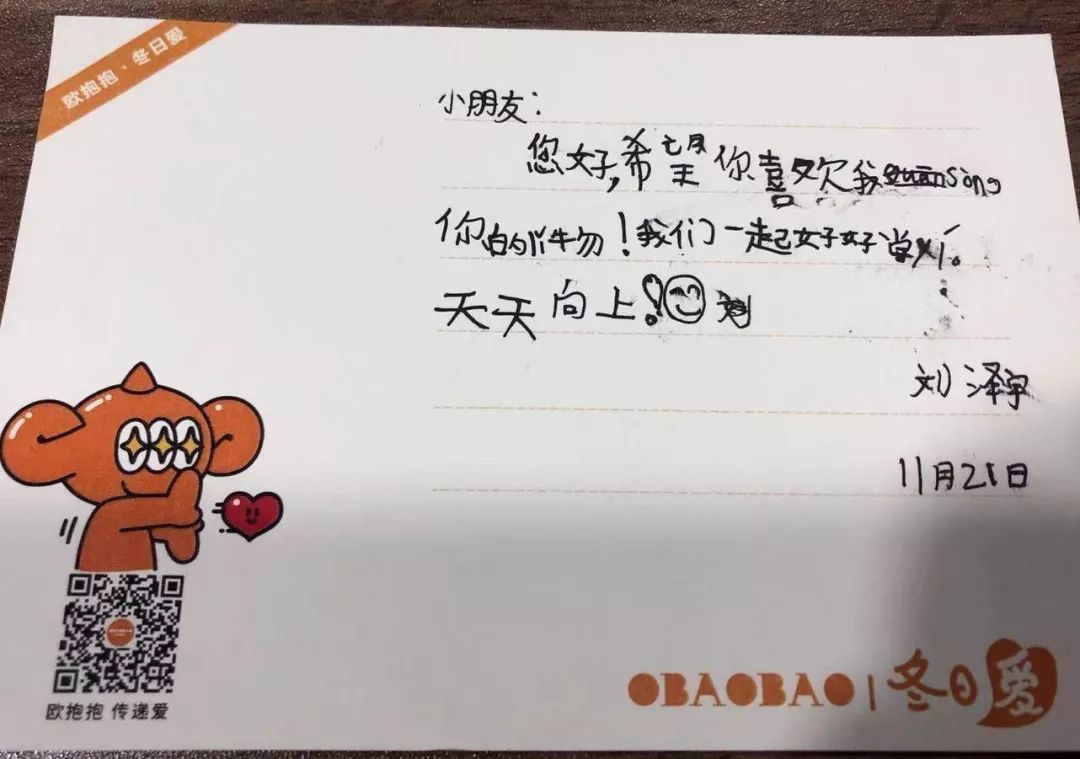 欧抱抱·冬日爱
小朋友：
您好,希望你喜欢我sòng
你的礼物！我们一起好好学习。
天天向上！
刘泽宇
11月21日
欧抱抱 传递爱
OBAOBAO | 冬日爱